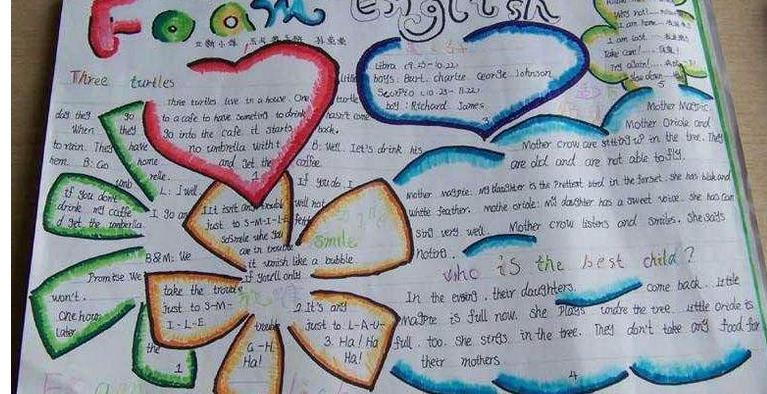 Foam English
Three turtles
three turtles live in a house. One
day they go to a cafe to have someting to drink
When they go into the cafe it starts
to rain. They have no umbrella with t
hem. B: Go home and get the
umb relle.
little
turtle
hasn't come
back.
B: Well. Let's drink his
coffee.
1
L: I will
if you don't
drink my caffe
I go an
d get the umbrella.
B&M: We
Promise We
won't.
One hour
Later
the
1
If you do, I
will not
It isn't any trouble
just to S-M-I-L-E
So smile whe you
are in trouble
it vanish like a bubble
If you'll only
smile
take the trouble
just to S-M-
I-L-E
2 It's any
trouble
just to L-A-U-
G-H
3. Ha! Ha
Ha!
Ha!
Libra (9.23-10.22)
boys: Bart. charlie George Johnson
Scorpio (10.23-11.22)
boy: Richard James
3
Why not!
I am home
I am lost.
Take care!
Try again!
Slow down
5
Mother Magpic.
Mother Oriole and
Mother crow are sitting up in the tree. They
are old and are not able to fly.
Mother magpie: my daughter is the Prettest bird in the forset. she has black and
white feather. mothe oriole: my daughter has a sweet voice. she has can
sing very well. Mother crow listens and smiles. She says
noting.
who is the best child?
In the evening. their daughters. come back. Little
magpie is full now. she plays undre the tree. Little oriole is
full. too. She sings in the tree. They don't take any food for
their mothers
4